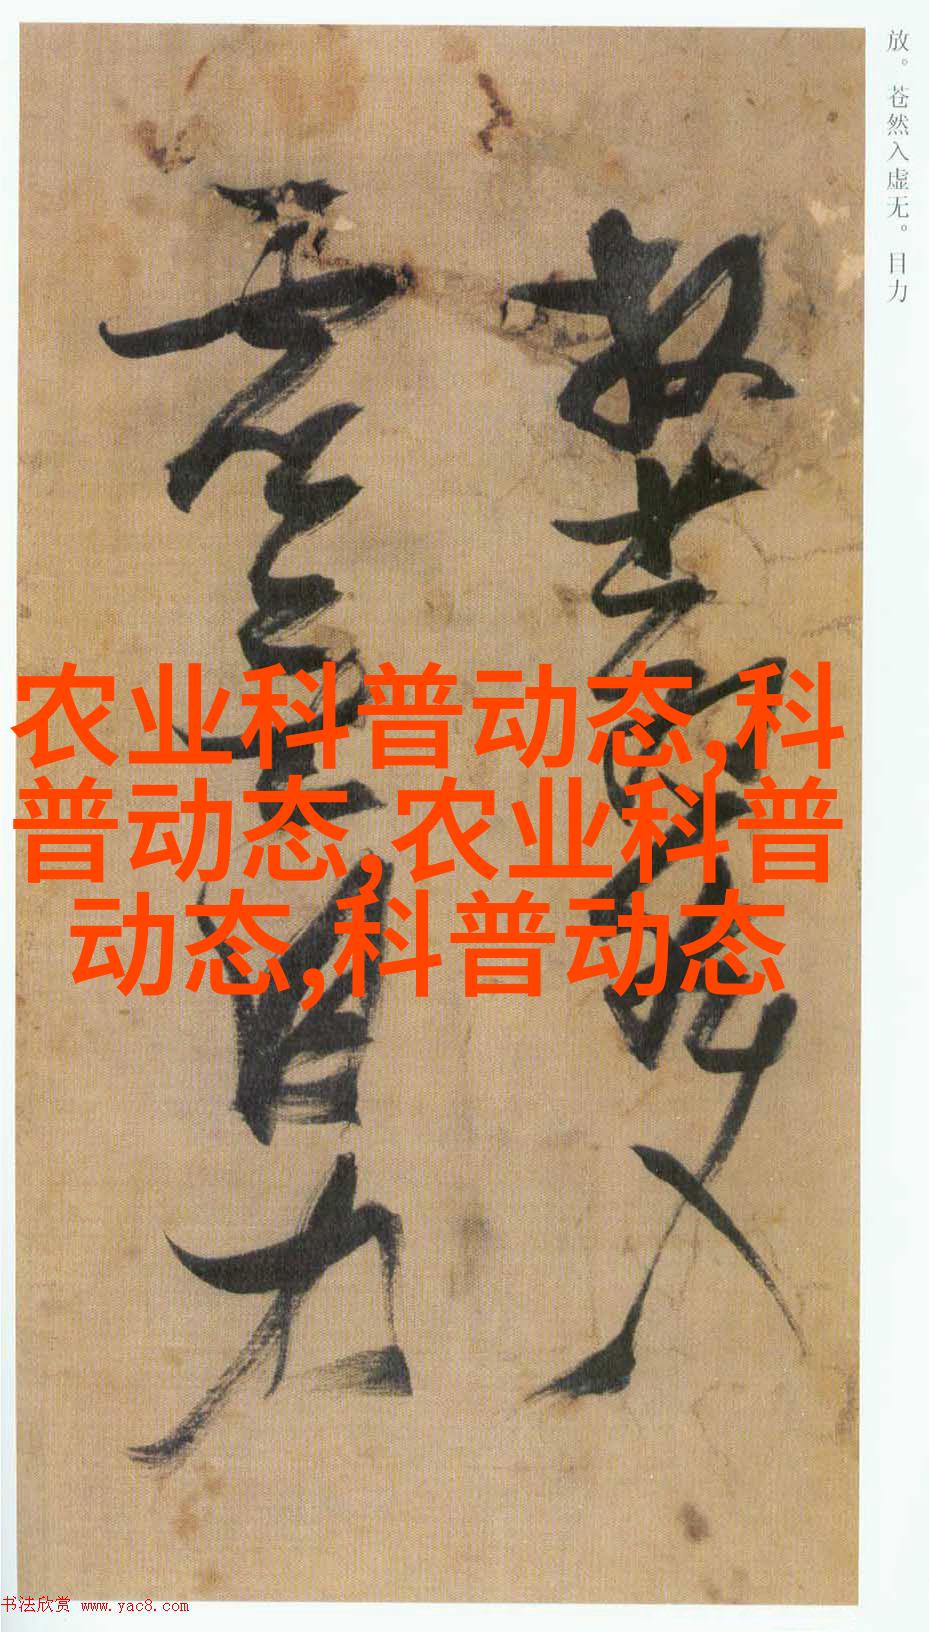 放。苍然入虚无。目力
放苍然入
虚无目力
农业科普动态,科
普动态,农业科普
动态,科普动态
书法欣赏 www.yac8.com